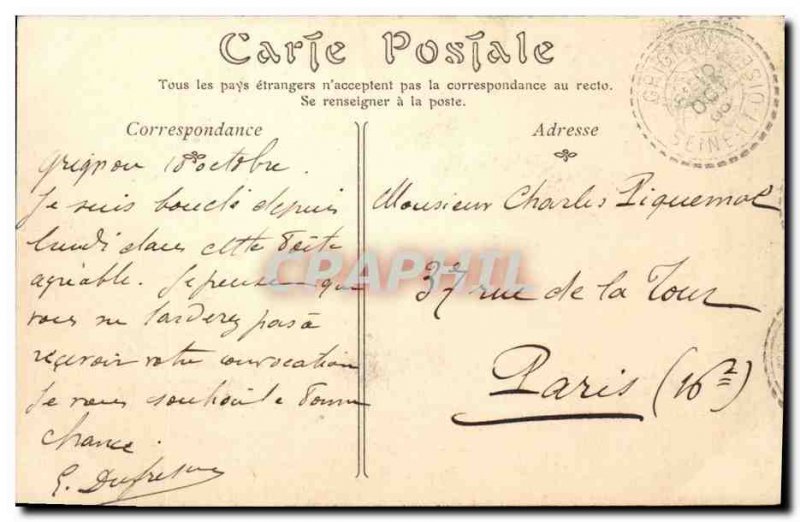 Carte Postale
Tous les pays étrangers n'acceptent pas la correspondance au recto.
Se renseigner à la poste.
Correspondance
Grignon 10 octobre.
Je suis bouclé depuis
lundi dans cette boîte
agréable. Je pense que
vous ne tarderez pas à
recevoir votre convocation
Je vous souhaite bonne
chance.
E. Dufresne
Adresse
Monsieur Charles Piquemal
37 rue de la Tour
Paris (16e)
GRIGNON
10
OCT
SEINE-ET-OISE
CPAPHIL